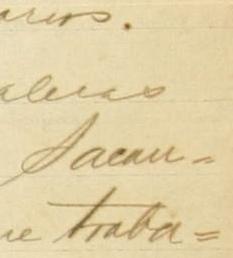 arios.
aleras
Sacan=
ue traba=